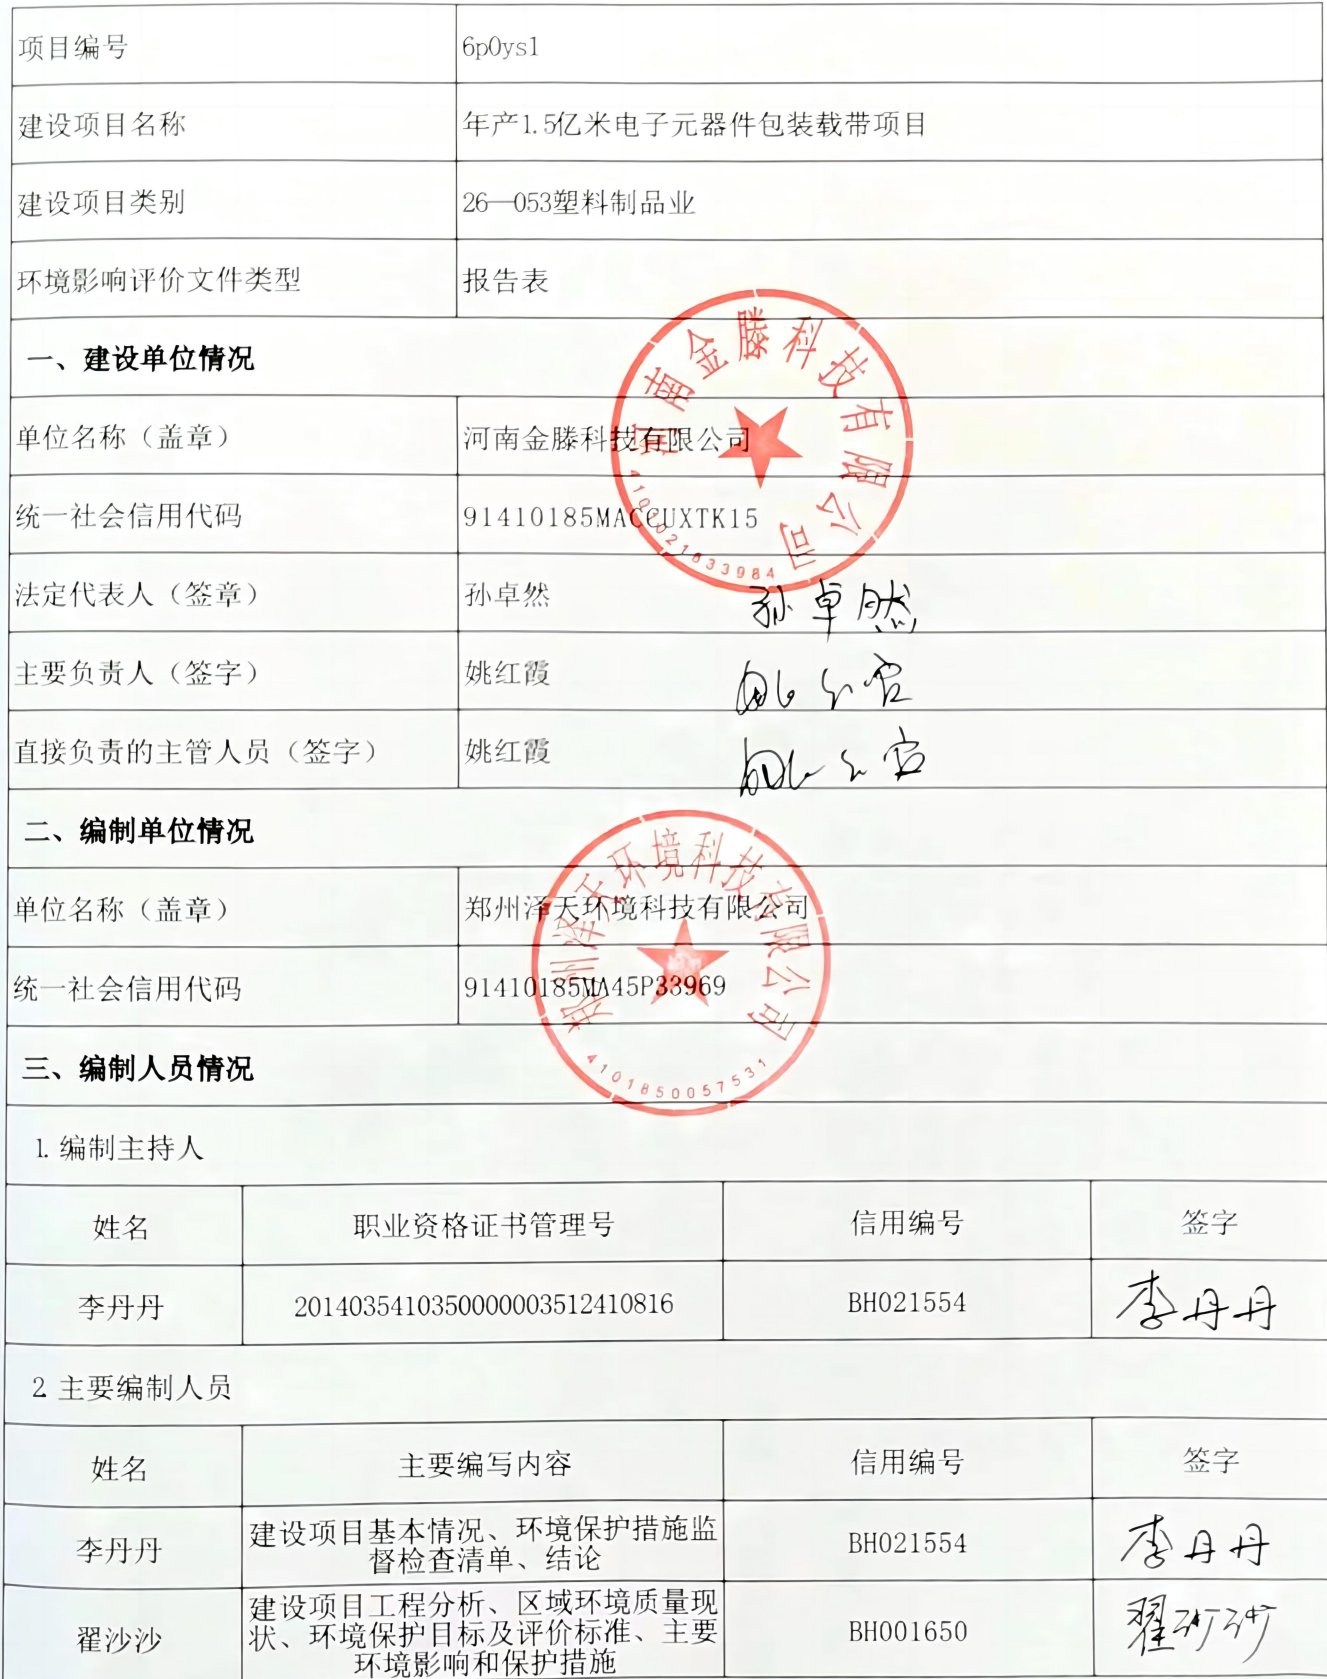 项目编号 6p0ys1
建设项目名称 年产1.5亿米电子元器件包装载带项目
建设项目类别 26—053塑料制品业
环境影响评价文件类型 报告表
一、建设单位情况
单位名称（盖章） 河南金滕科技有限公司
统一社会信用代码 91410185MACCUXTK15
法定代表人（签章） 孙卓然 孙卓然
主要负责人（签字） 姚红霞 姚红霞
直接负责的主管人员（签字） 姚红霞 姚红霞
河南金滕科技有限公司
4101021833984
二、编制单位情况
单位名称（盖章） 郑州泽天环境科技有限公司
统一社会信用代码 91410185MA45P33969
郑州泽天环境科技有限公司
4101850057531
三、编制人员情况
1.编制主持人
姓名 职业资格证书管理号 信用编号 签字
李丹丹 2014035410350000003512410816 BH021554 李丹丹
2.主要编制人员
姓名 主要编写内容 信用编号 签字
李丹丹 建设项目基本情况、环境保护措施监 BH021554 李丹丹
督检查清单、结论
建设项目工程分析、区域环境质量现
翟沙沙 状、环境保护目标及评价标准、主要 BH001650 翟沙沙
环境影响和保护措施